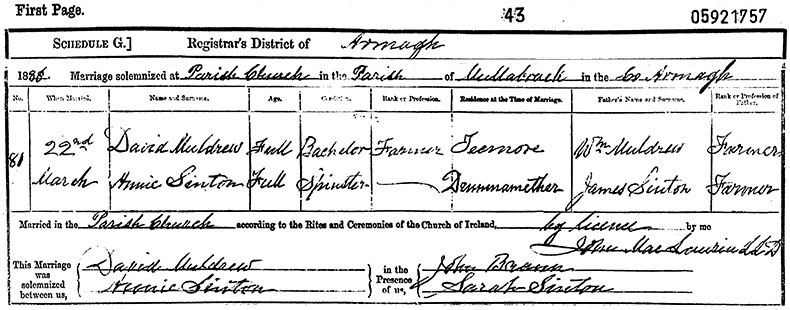 First Page. 43 05921757
SCHEDULE G.] Registrar's District of Armagh
188 . Marriage solemnized at Parish Church in the Parish of Mullabrack in the Co Armagh
No. When Married. Name and Surname. Age. Condition. Rank or Profession. Residence at the Time of Marriage. Father's Name and Surname. Rank or Profession of Father.
81 22nd David Muldrew Full Bachelor Farmer Teemore Wm Muldrew Farmer
March Annie Sinton Full Spinster Drumnamether James Sinton Farmer
Married in the Parish Church according to the Rites and Ceremonies of the Church of Ireland, by licence by me
John Mac Laurin LLD
This Marriage was solemnized between us, David Muldrew in the Presence of us, John
Annie Sinton Sarah Sinton